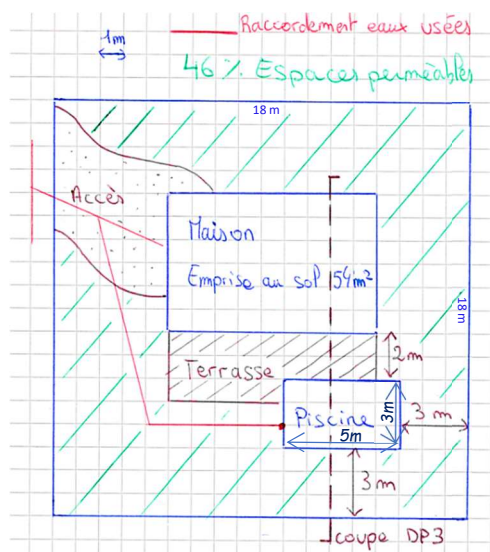 Raccordement eaux usées
1m
46 % Espaces perméables
18 m
Accès
Maison
Emprise au sol 54m²
18 m
2m
Terrasse
Piscine
3m
5m
3 m
3 m
coupe DP3